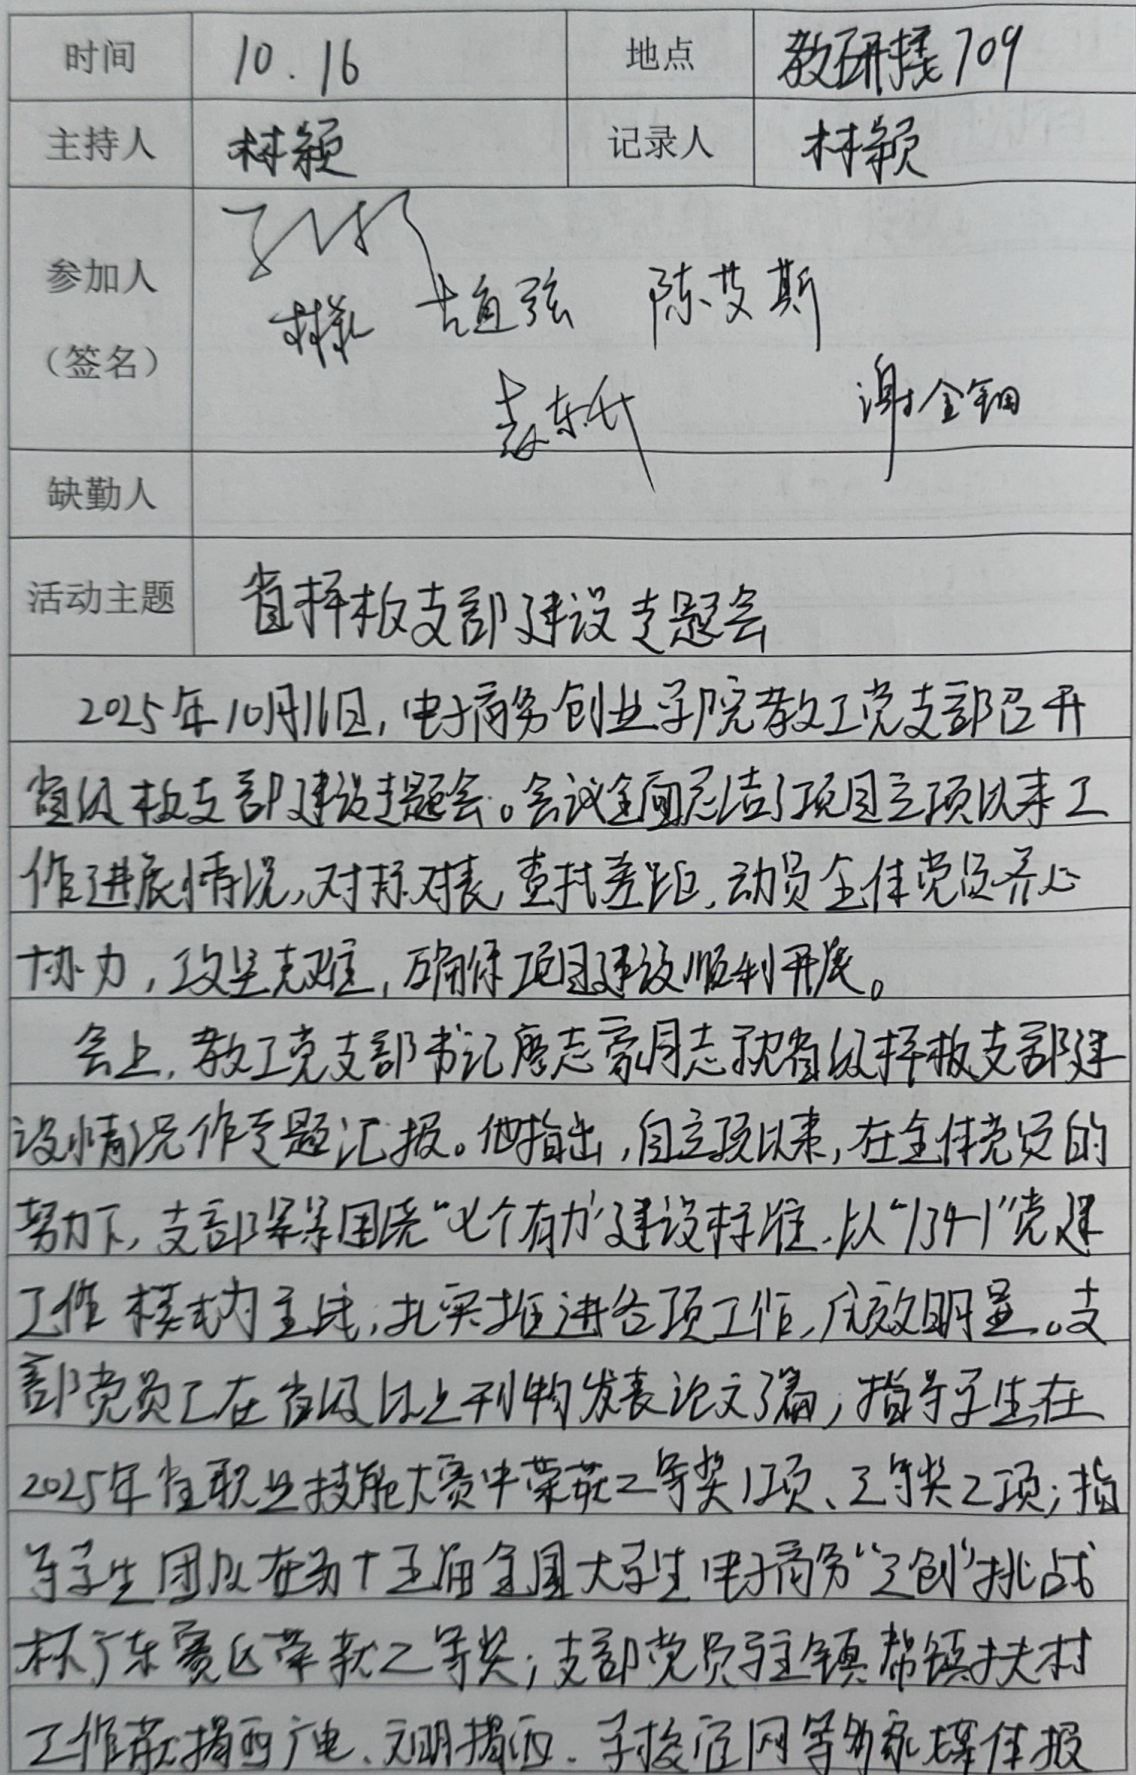 时间 10.16 地点 教研楼709
主持人 林颖 记录人 林颖
参加人
(签名)
古直弦 陈艾斯
袁东升 谢金钿
缺勤人
活动主题 省样板支部建设专题会
2025年10月16日,电子商务创业学院教工党支部召开
省级板支部建设专题会。会议全面总结了项目立项以来工
作进展情况,对标对表,查找差距,动员全体党员齐心
协力,攻坚克难,确保项目建设顺利开展。
会上,教工党支部书记廖志豪同志就省级样板支部建
设情况作专题汇报。他指出,自立项以来,在全体党员的
努力下,支部紧紧围绕“七个有力”建设标准,以“134-1”党建
工作模式为主线,扎实推进各项工作,成效明显。支
部党员已在省级以上刊物发表论文3篇;指导学生在
2025年省职业技能大赛中荣获二等奖1项、三等奖2项;指
导学生团队在第十五届全国大学生电子商务“三创”挑战
杯广东赛区荣获二等奖;支部党员驻镇帮镇扶村
工作获揭西广电、文明揭西、学校官网等多家媒体报